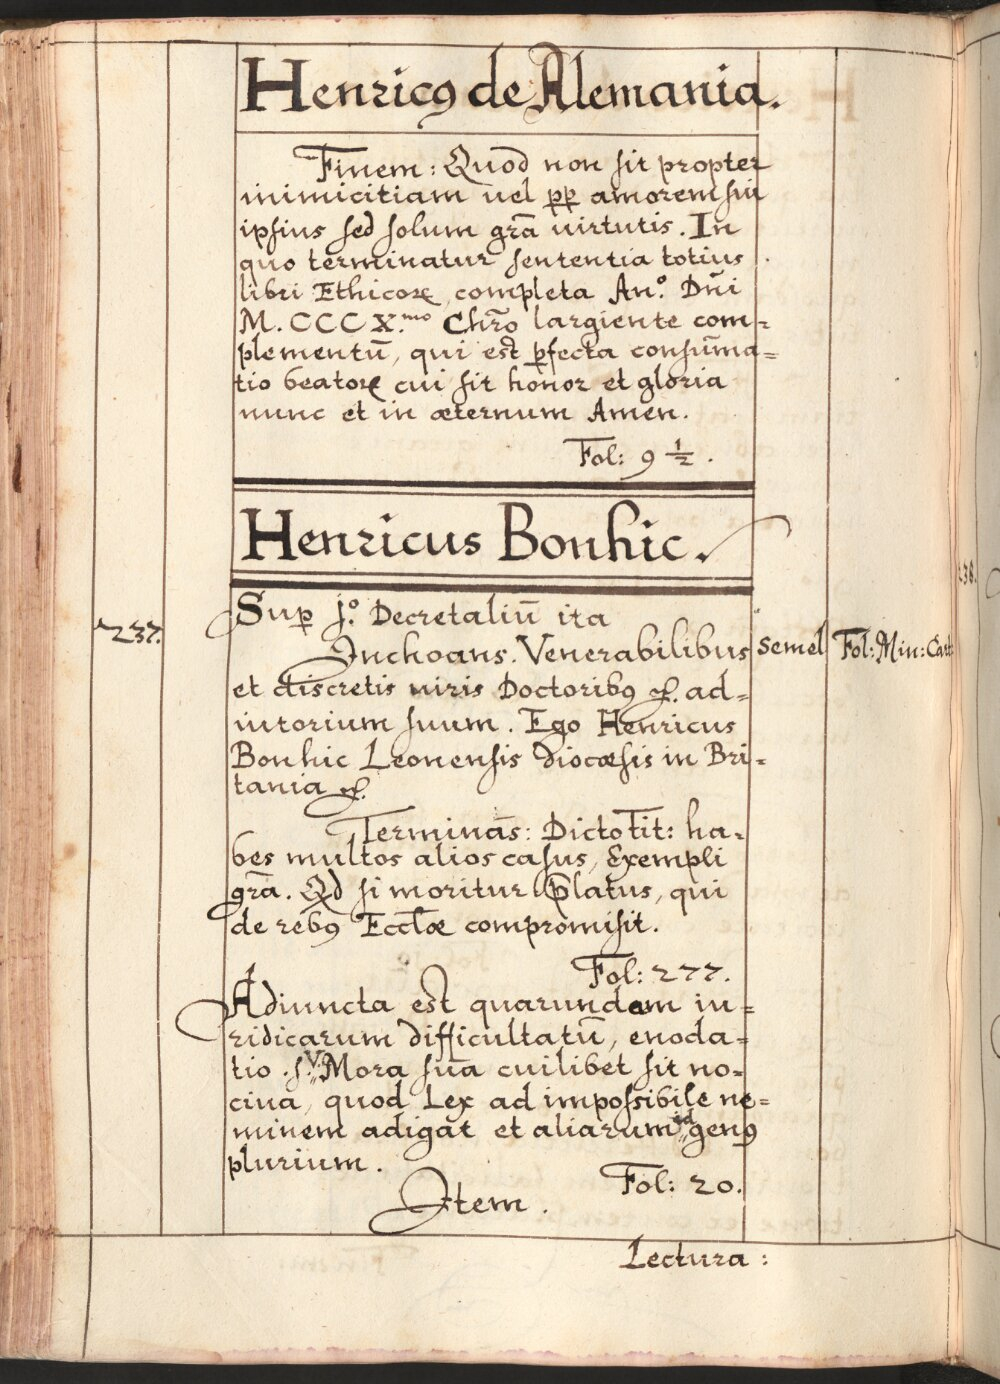 Henricꝰ de Alemania.
Finem: Quod non sit propter
inimicitiam vel ꝓꝑ amorem sui
ipsius sed solum grã virtutis. In
quo terminatur sententia totius
libri Ethicoꝝ completa An.º Dñi
M.CCCX.mo Chr̃o largiente com=
plementũ, qui est ꝑfecta consum̃a=
tio beatoꝝ cui sit honor et gloria
nunc et in æternum Amen.
Fol: 9 ½.
Henricus Bonhic.
237.
Suꝑ j.º Decretaliũ ita
Inchoans. Venerabilibus
semel
Fol: Min: Cart
et discretis viris Doctoribꝰ ad=
iutorium suum. Ego Henricus
Bonhic Leonensis diocæsis in Bri=
tania
Terminãs: Dicto Tit: ha=
bes multos alios casus, Exempli
grã. Qd si moritur P̃latus, qui
de rebꝰ Eccl̃æ compromisit.
Fol: 277.
Adiuncta est quarundam iu=
ridicarum difficultatũ, enoda=
tio. s. Vᵒ Mora sũa cuilibet sit no=
ciua, quod Lex ad impossibile ne=
minem adigat et aliarum ejd genꝰ
plurium.
Fol: 20.
Item.
Lectura:
238.